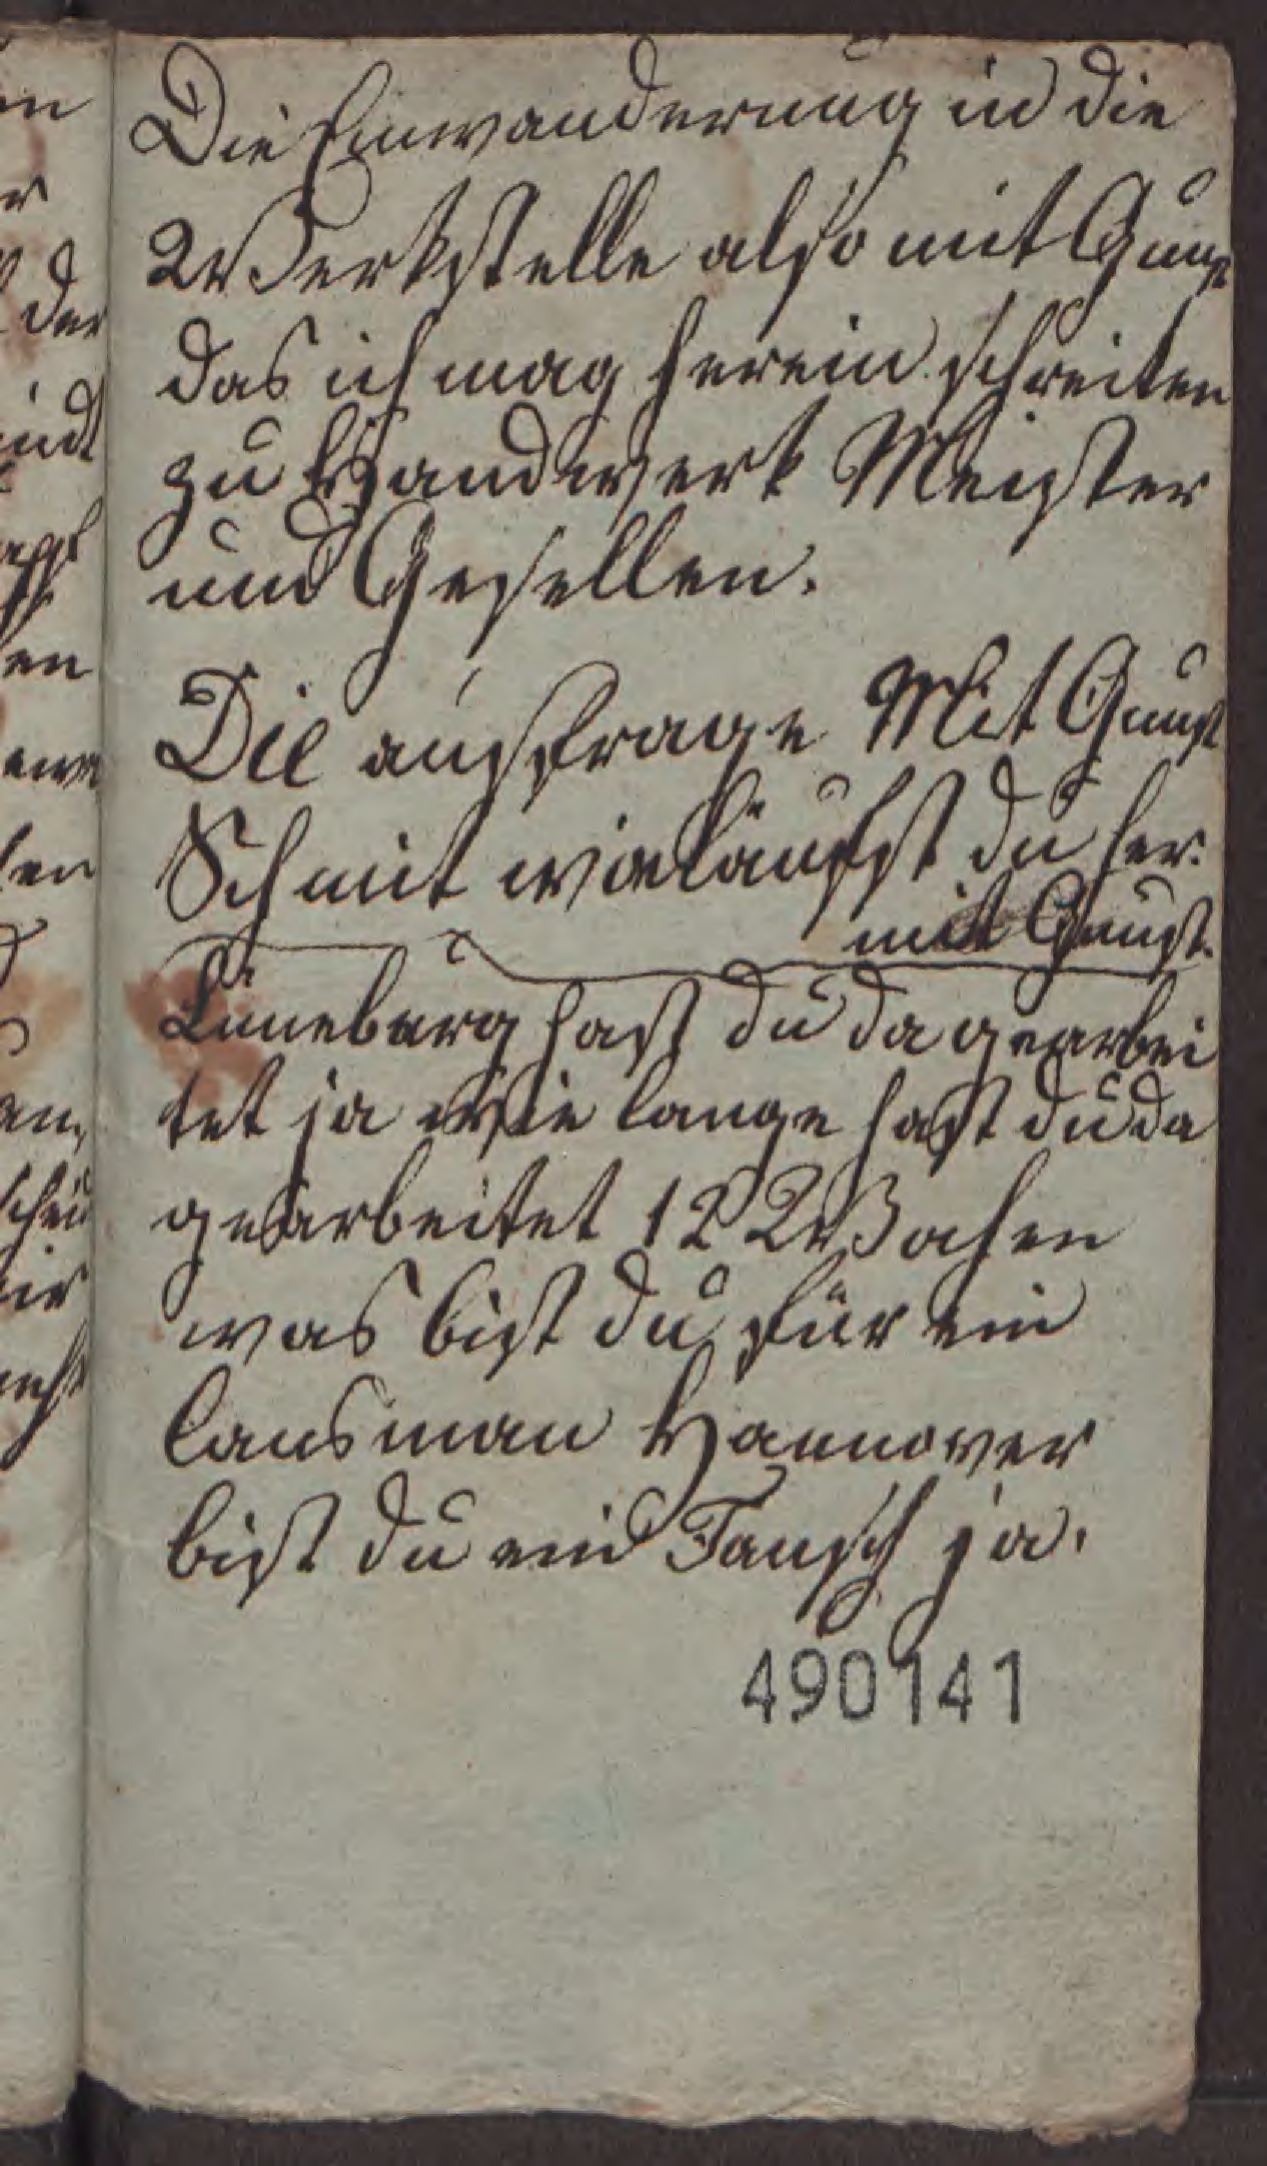 Die Einwanderung in die
Werkstelle also mit Gunst
das ich mag herein schreiten
zu Handwerk Meister
und Gesellen.
Die ausfrage Mit Gunst
Schmit wo läufst du her.
mit Gunst.
Lüneburg hast du da gearbei
tet ja Wie lange hast du da
gearbeitet 12 Wochen
was bist du für ein
lansman Hannover
bist du ein Tausch ja.
490141